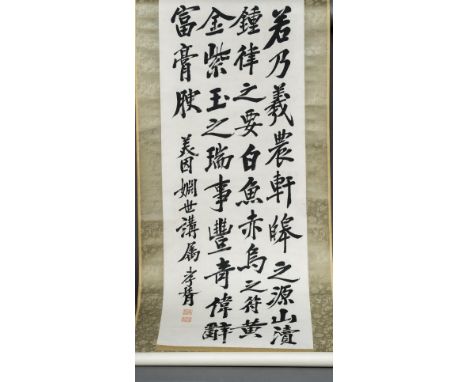 若乃羲農軒皞之源山瀆
鍾律之要白魚赤烏之符黃
金紫玉之瑞事豐奇偉辭
富膏腴
美因嫺世講属 孝胥